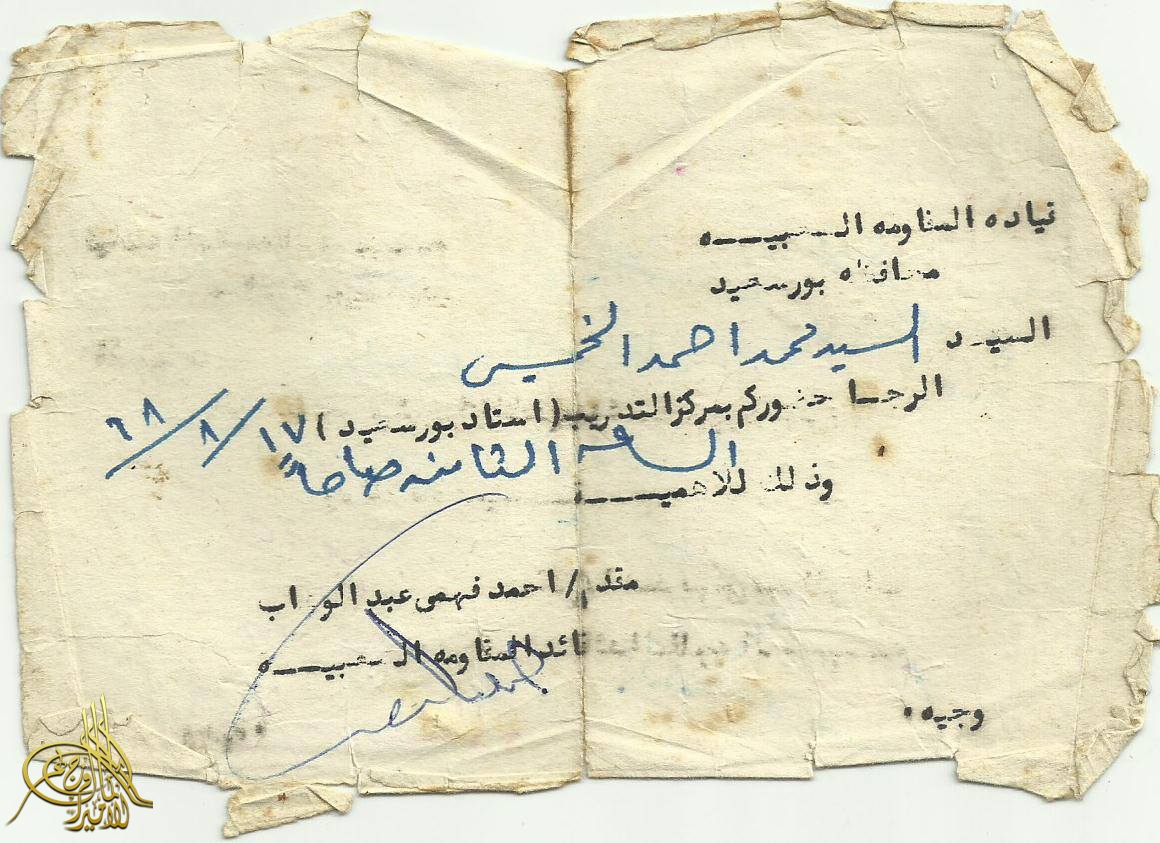 قياده المقاومه الشعبيـــه
محافظه بورسعيد
السيد السيد محمد احمد الخميسى
الرجا حضوركم بمركز التدريب (استاد بورسعيد) ١٧/٨/٦٨
الساعه الثامنه صباحاً
وذلك للاهميـــه
مقدم/ احمد فهمى عبد الوهاب
قائد المقاومه الشعبيـــه
وجيه